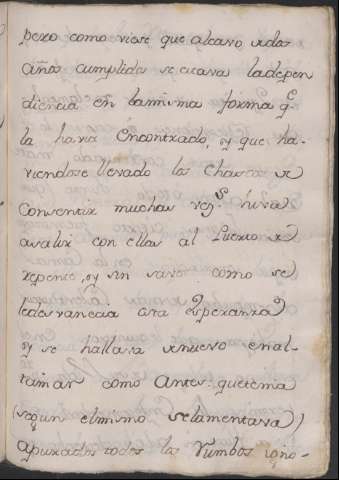 pero como viese que alcavo de dos
años cumplidos se estava la depen
dienca en la misma forma q.e
la havia encontrado, y que ha-
viendose llevado los chascos de
Consentir muchas vez.s que hiva
a salir con ellos al Puerto de
repente, y sin saver como se
le desvanecia esta Esperanza
y se hallava de nuevo en al-
tamar como antes: que tema
(segun el mismo se lamentava)
apurados todos los rumbos igno-